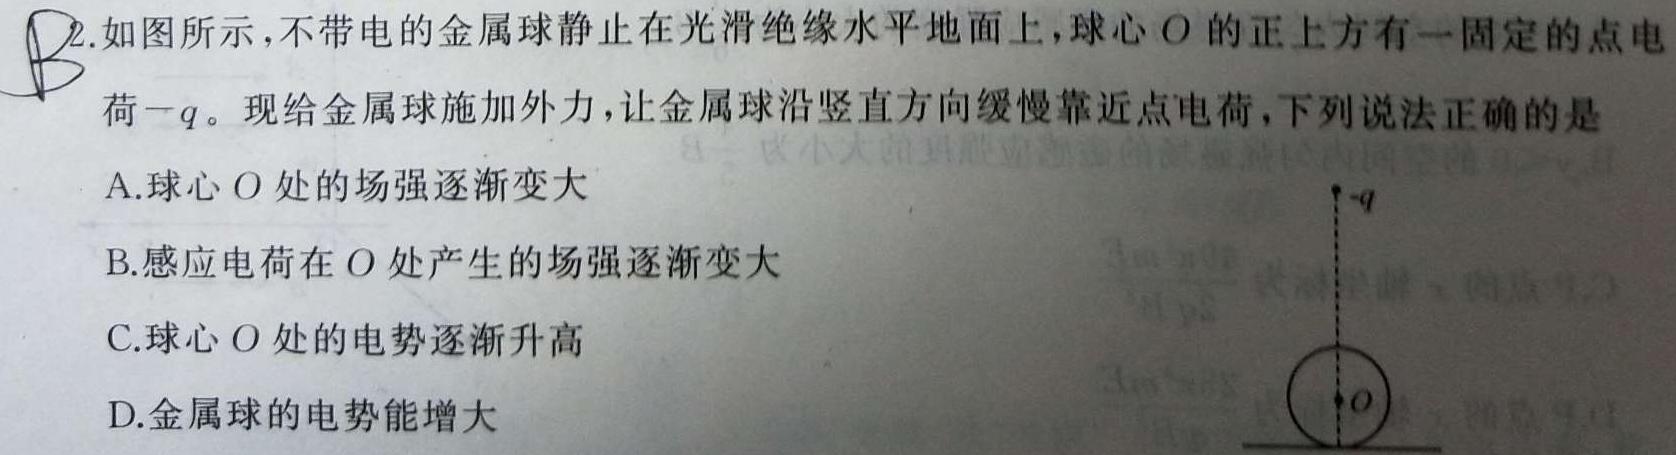 B
2.如图所示,不带电的金属球静止在光滑绝缘水平地面上,球心O的正上方有一固定的点电
荷-q。现给金属球施加外力,让金属球沿竖直方向缓慢靠近点电荷,下列说法正确的是
A.球心O处的场强逐渐变大
B.感应电荷在O处产生的场强逐渐变大
C.球心O处的电势逐渐升高
D.金属球的电势能增大
-q
O